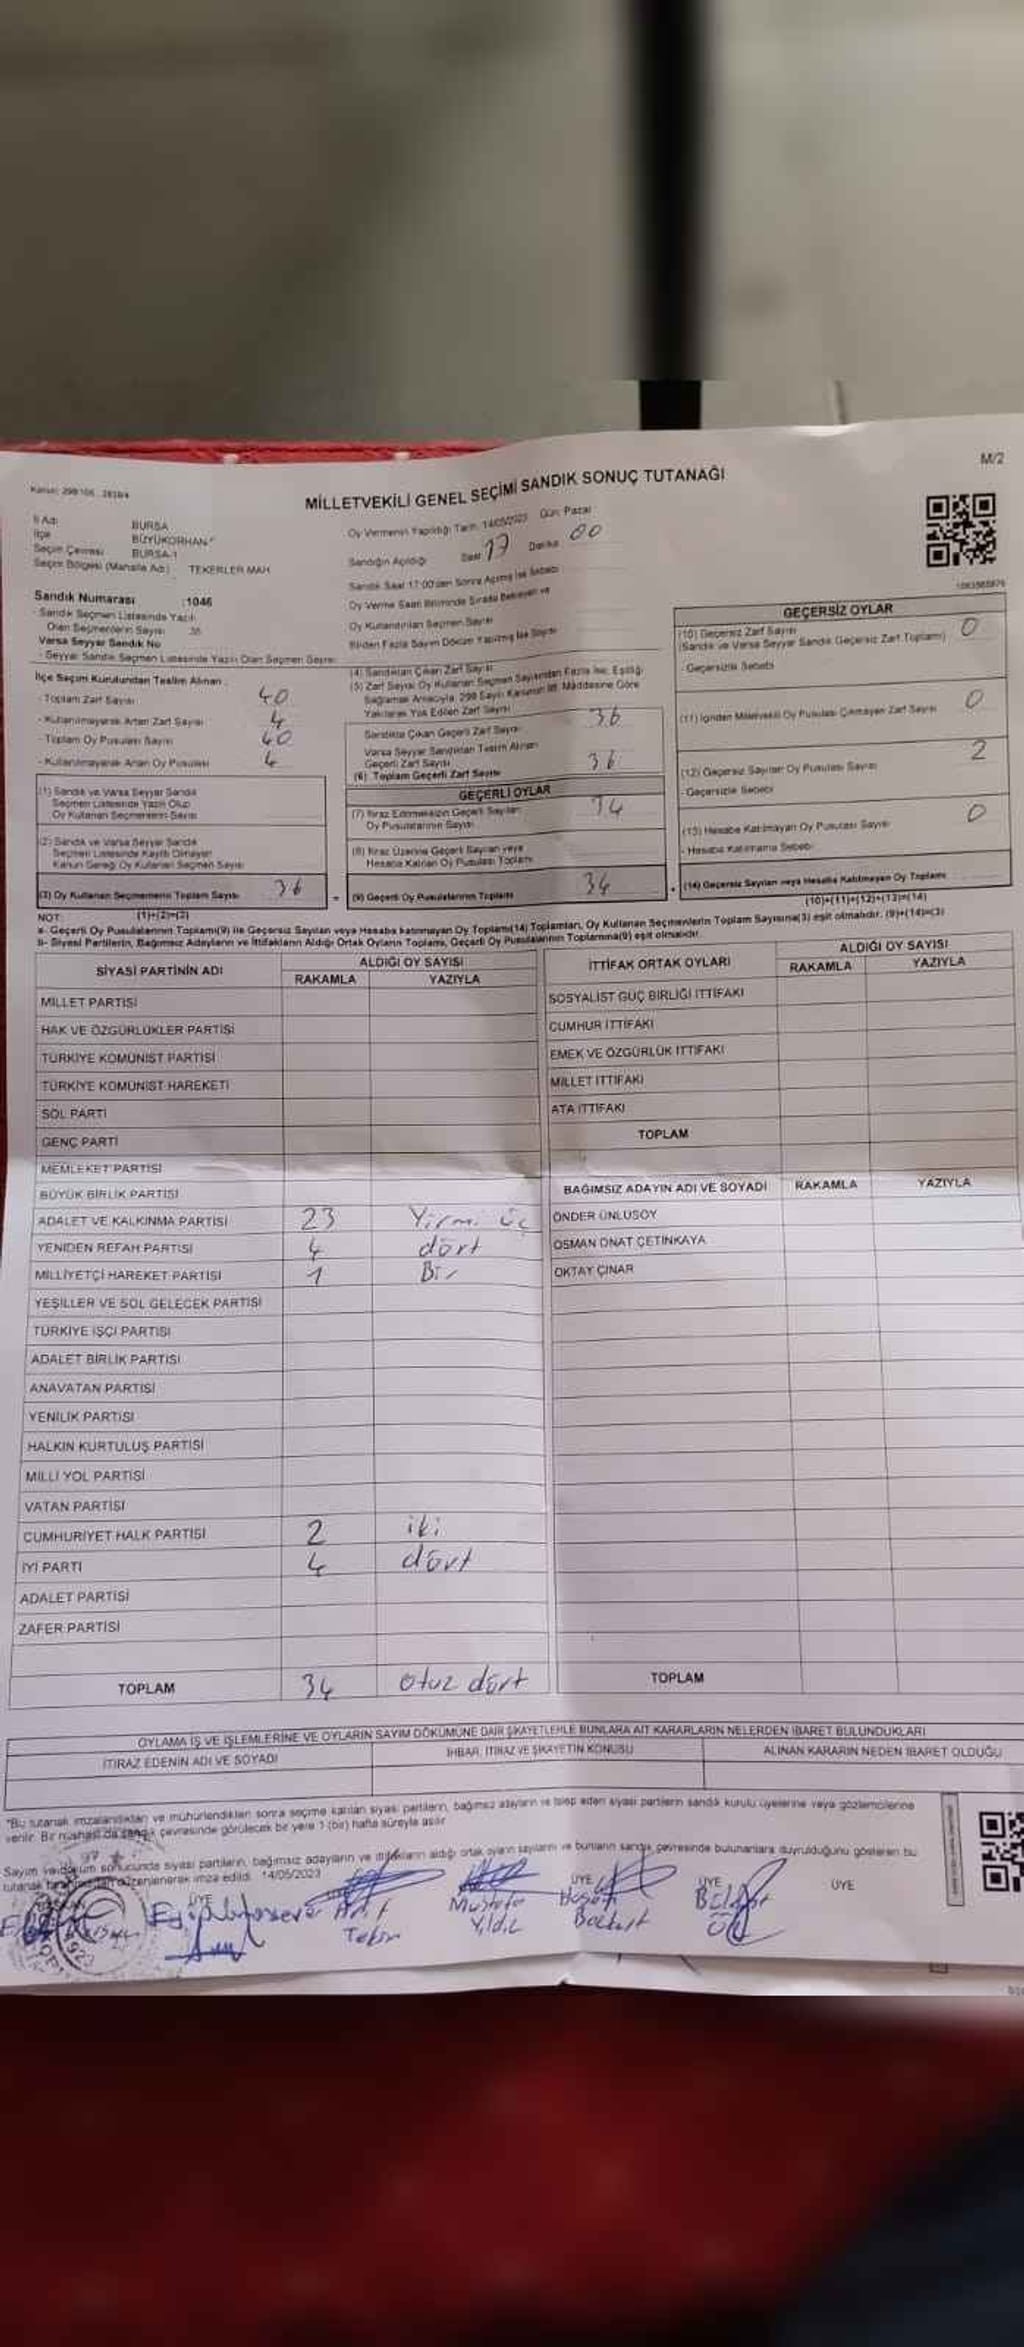 M/2
MİLLETVEKİLİ GENEL SEÇİMİ SANDIK SONUÇ TUTANAĞI
İl Adı BURSA
İlçe BÜYÜKORHAN
Seçim Çevresi BURSA-1
Seçim Bölgesi (Mahalle Adı) TEKERLER MAH
Oy Vermenin Yapıldığı Tarih: 14/05/2023 Gün: Pazar
Sandığın Açıldığı Saat 17 Dakika 00
Sandık Saat 17:00'den Sonra Açılmış İse Sebebi
Oy Verme Saati Bitiminde Sırada Bekleyen ve
Oy Kullandırılan Seçmen Sayısı
Birden Fazla Sayım Döküm Yapılmış İse Sayısı
Sandık Numarası :1046
- Sandık Seçmen Listesinde Yazılı
Olan Seçmenlerin Sayısı
Varsa Seyyar Sandık No
- Seyyar Sandık Seçmen Listesinde Yazılı Olan Seçmen Sayısı
İlçe Seçim Kurulundan Teslim Alınan :
- Toplam Zarf Sayısı 40
- Kullanılmayarak Artan Zarf Sayısı 4
- Toplam Oy Pusulası Sayısı 40
- Kullanılmayarak Artan Oy Pusulası 4
(1) Sandık ve Varsa Seyyar Sandık
Seçmen Listesinde Yazılı Olup
Oy Kullanan Seçmenlerin Sayısı
(2) Sandık ve Varsa Seyyar Sandık
Seçmen Listesinde Kayıtlı Olmayan
Kanun Gereği Oy Kullanan Seçmen Sayısı
(3) Oy Kullanan Seçmenlerin Toplam Sayısı 36
(1)+(2)=(3)
(4) Sandıktan Çıkan Zarf Sayısı
(5) Zarf Sayısı Oy Kullanan Seçmen Sayısından Fazla İse, Eşitliği
Sağlamak Amacıyla, 298 Sayılı Kanunun 98. Maddesine Göre
Yakılarak Yok Edilen Zarf Sayısı
Sandıkta Çıkan Geçerli Zarf Sayısı 36
Varsa Seyyar Sandıktan Teslim Alınan
Geçerli Zarf Sayısı
(6) Toplam Geçerli Zarf Sayısı 36
GEÇERLİ OYLAR
(7) İtiraz Edilmeksizin Geçerli Sayılan
Oy Pusulalarının Sayısı 34
(8) İtiraz Üzerine Geçerli Sayılan veya
Hesaba Katılan Oy Pusulası Toplamı
(9) Geçerli Oy Pusulalarının Toplamı 34
GEÇERSİZ OYLAR
(10) Geçersiz Zarf Sayısı 0
(Sandık ve Varsa Seyyar Sandık Geçersiz Zarf Toplamı)
- Geçersizlik Sebebi
(11) İçinden Milletvekili Oy Pusulası Çıkmayan Zarf Sayısı 0
(12) Geçersiz Sayılan Oy Pusulası Sayısı 2
- Geçersizlik Sebebi
(13) Hesaba Katılmayan Oy Pusulası Sayısı 0
- Hesaba Katılmama Sebebi
(14) Geçersiz Sayılan veya Hesaba Katılmayan Oy Toplamı
(10)+(11)+(12)+(13)=(14)
NOT:
a- Geçerli Oy Pusulalarının Toplamı(9) ile Geçersiz Sayılan veya Hesaba katılmayan Oy Toplamı(14) Toplamları, Oy Kullanan Seçmenlerin Toplam Sayısına(3) eşit olmalıdır. (9)+(14)=(3)
b- Siyasi Partilerin, Bağımsız Adayların ve İttifakların Aldığı Ortak Oyların Toplamı, Geçerli Oy Pusulalarının Toplamına(9) eşit olmalıdır.
SİYASİ PARTİNİN ADI ALDIĞI OY SAYISI
RAKAMLA YAZIYLA
MİLLET PARTİSİ
HAK VE ÖZGÜRLÜKLER PARTİSİ
TÜRKİYE KOMÜNİST PARTİSİ
TÜRKİYE KOMÜNİST HAREKETİ
SOL PARTİ
GENÇ PARTİ
MEMLEKET PARTİSİ
BÜYÜK BİRLİK PARTİSİ
ADALET VE KALKINMA PARTİSİ 23 Yirmi üç
YENİDEN REFAH PARTİSİ 4 dört
MİLLİYETÇİ HAREKET PARTİSİ 1 Bir
YEŞİLLER VE SOL GELECEK PARTİSİ
TÜRKİYE İŞÇİ PARTİSİ
ADALET BİRLİK PARTİSİ
ANAVATAN PARTİSİ
YENİLİK PARTİSİ
HALKIN KURTULUŞ PARTİSİ
MİLLİ YOL PARTİSİ
VATAN PARTİSİ
CUMHURİYET HALK PARTİSİ 2 iki
İYİ PARTİ 4 dört
ADALET PARTİSİ
ZAFER PARTİSİ
TOPLAM 34 otuz dört
İTTİFAK ORTAK OYLARI ALDIĞI OY SAYISI
RAKAMLA YAZIYLA
SOSYALİST GÜÇ BİRLİĞİ İTTİFAKI
CUMHUR İTTİFAKI
EMEK VE ÖZGÜRLÜK İTTİFAKI
MİLLET İTTİFAKI
ATA İTTİFAKI
TOPLAM
BAĞIMSIZ ADAYIN ADI VE SOYADI RAKAMLA YAZIYLA
ÖNDER ÜNLÜSOY
OSMAN ONAT ÇETİNKAYA
OKTAY ÇINAR
TOPLAM
OYLAMA İŞ VE İŞLEMLERİNE VE OYLARIN SAYIM DÖKÜMÜNE DAİR ŞİKAYETLERLE BUNLARA AİT KARARLARIN NELERDEN İBARET BULUNDUKLARI
İTİRAZ EDENİN ADI VE SOYADI İHBAR, İTİRAZ VE ŞİKAYETİN KONUSU ALINAN KARARIN NEDEN İBARET OLDUĞU
"Bu tutanak imzalandıktan ve mühürlendikten sonra seçime katılan siyasi partilerin, bağımsız adayların ve talep eden siyasi partilerin sandık kurulu üyelerine veya gözlemcilerine
verilir. Bir nüshası da sandık çevresinde görülecek bir yere 1 (bir) hafta süreyle asılır
Sayım ve döküm sonucunda siyasi partilerin, bağımsız adayların ve ittifakların aldığı ortak oyların sayılarını ve bunların sandık çevresinde bulunanlara duyrulduğunu gösteren bu
düzenlenerek imza edildi. 14/05/2023
ÜYE ÜYE ÜYE ÜYE
Tekin
Mustafa
Yıldız